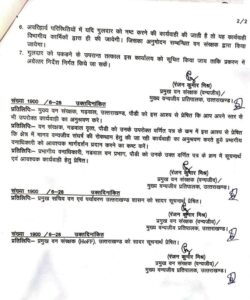 2/2
6. अपरिहार्य परिस्थितियों में यदि गुलदार को नष्ट करने की कार्यवाही की जाती है तो यह कार्यवाही
विभागीय कार्मिकों द्वारा ही की जायेगी। जिसका अनुमोदन सम्बन्धित वन संरक्षक द्वारा किया
जायेगा।
7. गुलदार को पकड़ने के उपरान्त तत्काल इस कार्यालय को सूचित किया जाय ताकि प्रकरण में
अग्रेतर निर्देश निर्गत किये जा सकें।
(रंजन कुमार मिश्र)
प्रमुख वन संरक्षक (वन्यजीव)/
मुख्य वन्यजीव प्रतिपालक, उत्तराखण्ड।
संख्या 1900 /6–28 उक्तदिनांकित
प्रतिलिपि– मुख्य वन संरक्षक, गढ़वाल, उत्तराखण्ड, पौड़ी को इस आशय से प्रेषित कि आप अपने स्तर से
भी उपरोक्त कार्यवाही का अनुश्रवण करें।
प्रतिलिपि– वन संरक्षक, गढ़वाल वृत्त, पौड़ी को उनके उपरोक्त वर्णित पत्र के क्रम में इस आशय से प्रेषित
कि क्षेत्र में मानव वन्यजीव संघर्ष की रोकथाम हेतु की जा रही कार्यवाही का अनुश्रवण करते हुये प्रभागीय
वनाधिकारी को आवश्यक मार्गदर्शन प्रदान करने का कष्ट करें।
प्रतिलिपि– प्रभागीय वनाधिकारी, गढ़वाल वन प्रभाग, पौड़ी को उनके उक्त वर्णित पत्र के क्रम में सूचनार्थ
एवं आवश्यक कार्यवाही हेतु प्रेषित।
(रंजन कुमार मिश्र)
प्रमुख वन संरक्षक (वन्यजीव)/
मुख्य वन्यजीव प्रतिपालक, उत्तराखण्ड।
संख्या 1900 /6–28 उक्तदिनांकित
प्रतिलिपि– प्रमुख सचिव वन एवं पर्यावरण उत्तराखण्ड शासन को सादर सूचनार्थ प्रेषित।
(रंजन कुमार मिश्र)
प्रमुख वन संरक्षक (वन्यजीव)/
मुख्य वन्यजीव प्रतिपालक, उत्तराखण्ड।
संख्या 1900 /6–28 उक्तदिनांकित
प्रतिलिपि– प्रमुख वन संरक्षक (HoFF), उत्तराखण्ड को सादर सूचनार्थ प्रेषित।
(रंजन कुमार मिश्र)
प्रमुख वन संरक्षक (वन्यजीव)/
मुख्य वन्यजीव प्रतिपालक, उत्तराखण्ड।